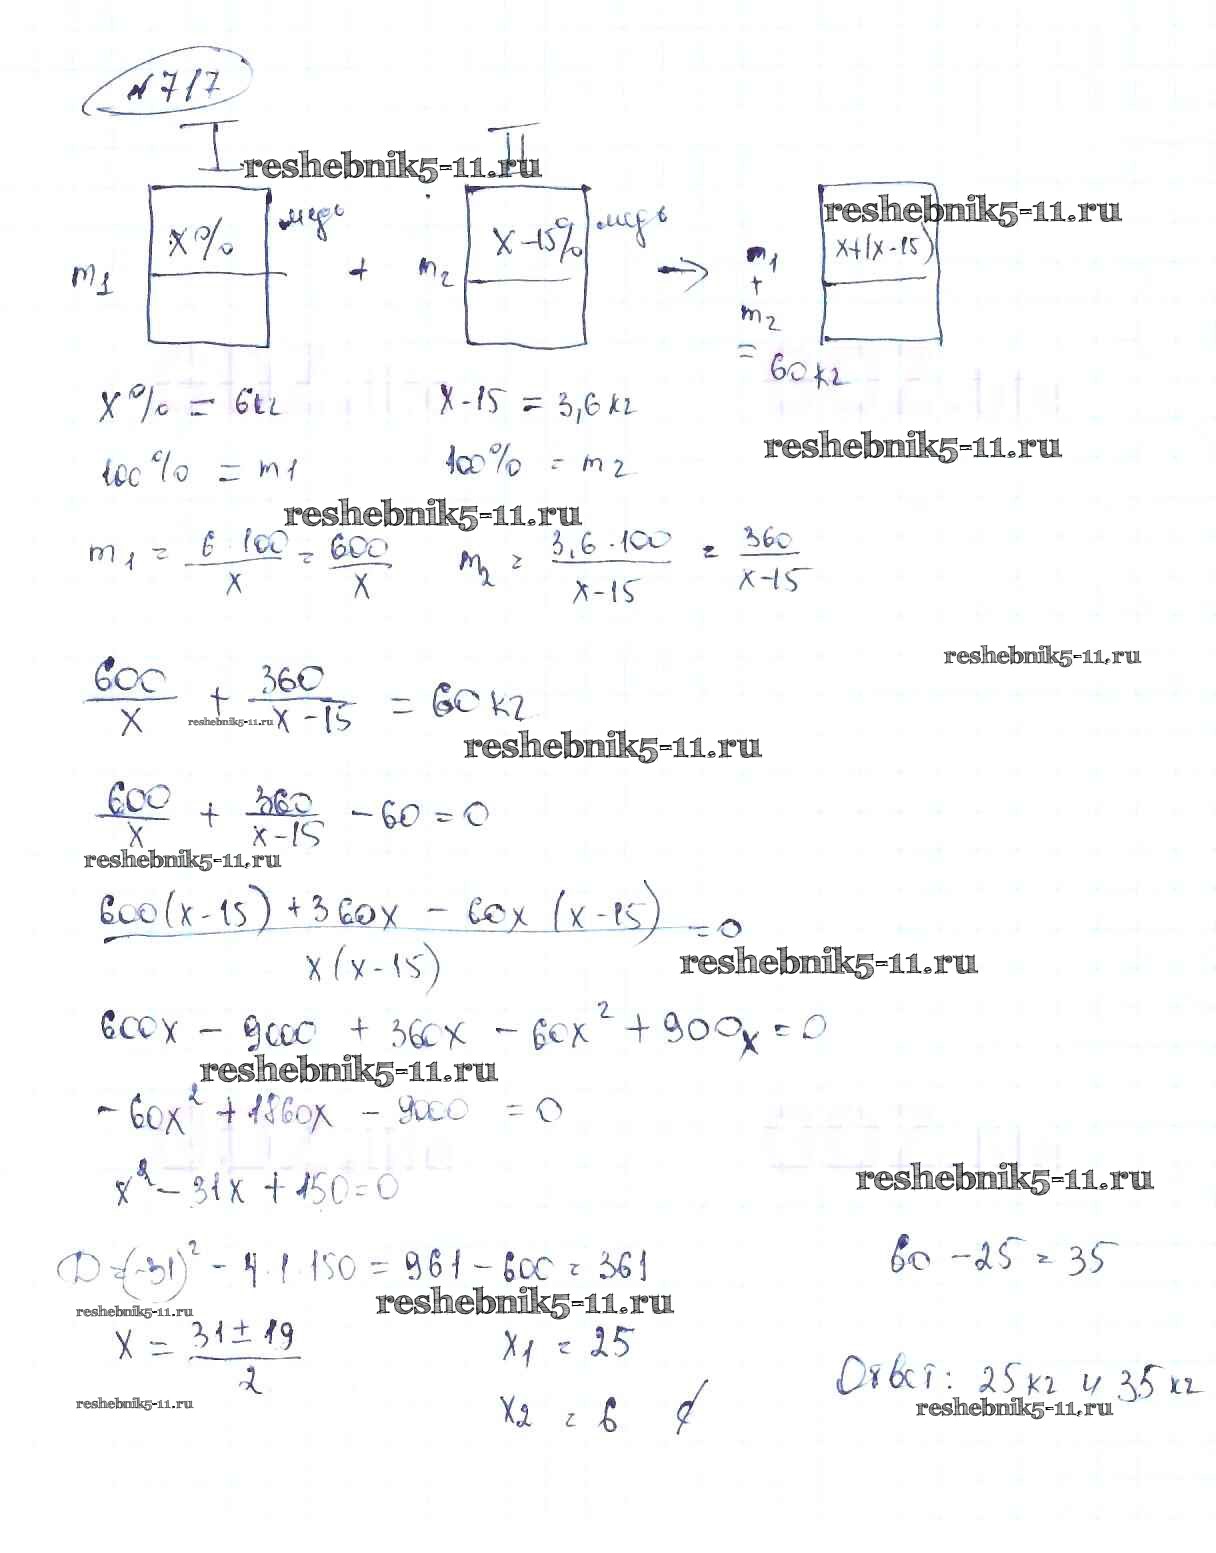 №717
I II
reshebnik5-11.ru
reshebnik5-11.ru
x% медь x-15% медь x+(x-15)
m1 + m2 → m1 + m2 = 60кг
x% = 6кг x-15 = 3,6кг
reshebnik5-11.ru
100% = m1 100% = m2
reshebnik5-11.ru
m1 = 6·100/x = 600/x m2 = 3,6·100/x-15 = 360/x-15
reshebnik5-11.ru
600/x + 360/x-15 = 60кг
reshebnik5-11.ru
reshebnik5-11.ru
600/x + 360/x-15 - 60 = 0
reshebnik5-11.ru
600(x-15) + 360x - 60x(x-15)/x(x-15) = 0
reshebnik5-11.ru
600x - 9000 + 360x - 60x² + 900x = 0
reshebnik5-11.ru
-60x² + 1860x - 9000 = 0
reshebnik5-11.ru
x² - 31x + 150 = 0
D = (-31)² - 4·1·150 = 961 - 600 = 361 60 - 25 = 35
reshebnik5-11.ru
reshebnik5-11.ru
x = 31±19/2 x1 = 25
Ответ: 25кг и 35кг
reshebnik5-11.ru
reshebnik5-11.ru
x2 = 6 ∉